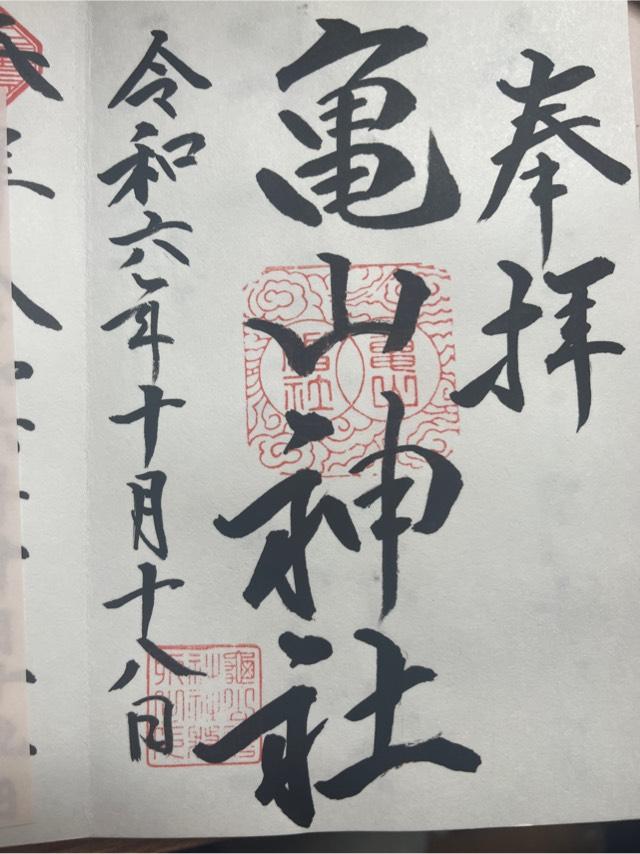 奉拝
亀山神社
令和六年十月十八日